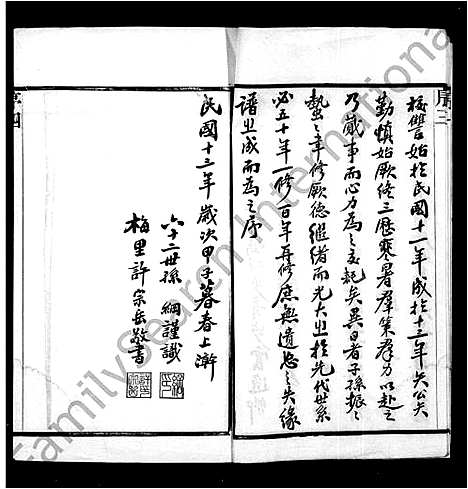 序三
校讐始於民國十一年成於十三年矢公矢
勤慎始厥終三歷寒暑羣策羣力以赴之
乃蕆事而心力為之交耗矣異日者子孫振振
蟄蟄聿修厥德繼緒而光大之於先代世系
必五十年一修百年再修庶無遺忘之失緣
譜之成而為之序
民國十三年歲次甲子暮春上澣
六十二世孫 綱謹識
梅里許宗岳敬書
序四
FamilySearch International